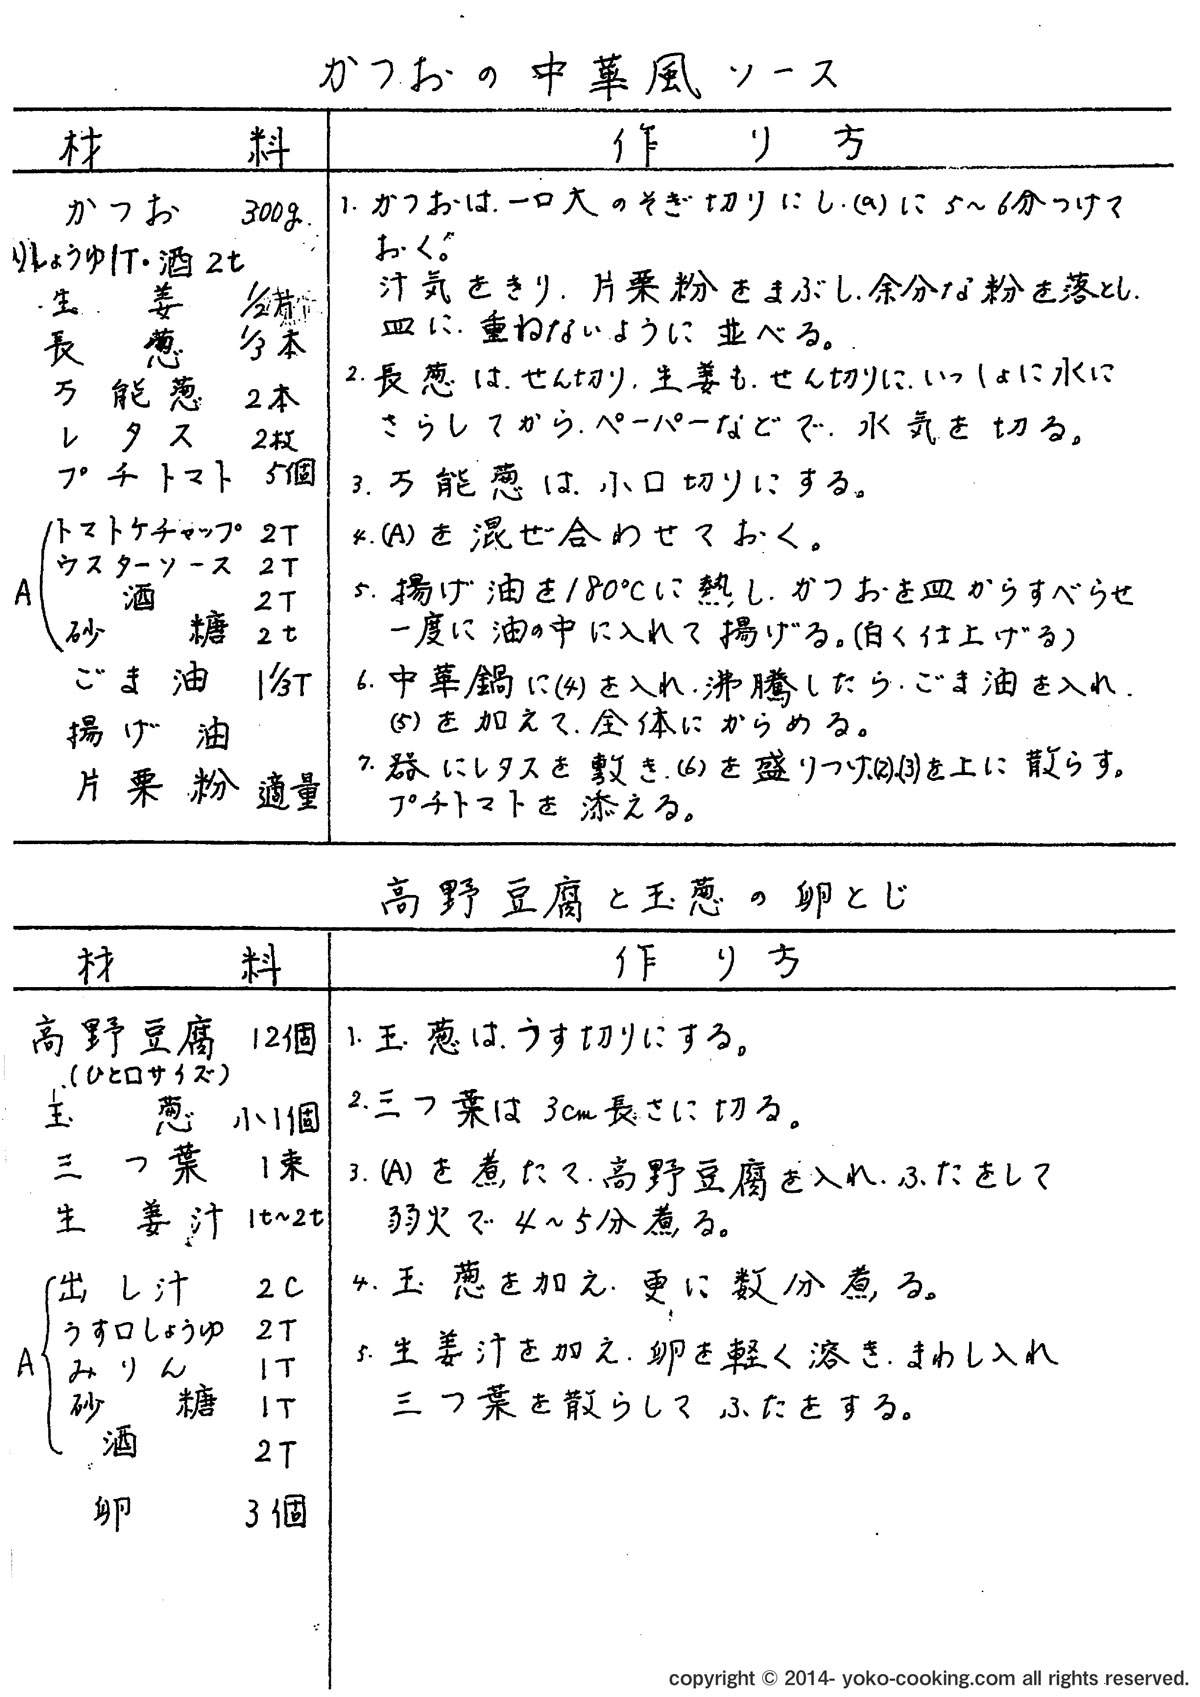 かつおの中華風ソース
材料
作り方
かつお 300g
しょうゆ1T・酒2t
生姜 1/2片
長葱 1/3本
万能葱 2本
レタス 2枚
プチトマト 5個
A
トマトケチャップ 2T
ウスターソース 2T
酒 2T
砂糖 2t
ごま油 1 1/3T
揚げ油
片栗粉 適量
1. かつおは、一口大のそぎ切りにし、(a)に5〜6分つけて
おく。
汁気をきり、片栗粉をまぶし、余分な粉を落とし、
皿に、重ねないように並べる。
2. 長葱は、せん切り、生姜も、せん切りに、いっしょに水に
さらしてから、ペーパーなどで、水気を切る。
3. 万能葱は、小口切りにする。
4. (A)を混ぜ合わせておく。
5. 揚げ油を180℃に熱し、かつおを皿からすべらせ
一度に油の中に入れて揚げる。(白く仕上げる)
6. 中華鍋に(4)を入れ、沸騰したら、ごま油を入れ、
(5)を加えて、全体にからめる。
7. 器にレタスを敷き、(6)を盛りつけ、(2)、(3)を上に散らす。
プチトマトを添える。
高野豆腐と玉葱の卵とじ
材料
作り方
高野豆腐 12個
(ひと口サイズ)
玉葱 小1個
三つ葉 1束
生姜汁 1t〜2t
A
出し汁 2C
うす口しょうゆ 2T
みりん 1T
砂糖 1T
酒 2T
卵 3個
1. 玉葱は、うす切りにする。
2. 三つ葉は3cm長さに切る。
3. (A)を煮たて、高野豆腐を入れ、ふたをして
弱火で4〜5分煮る。
4. 玉葱を加え、更に数分煮る。
5. 生姜汁を加え、卵を軽く溶き、まわし入れ
三つ葉を散らしてふたをする。
copyright © 2014- yoko-cooking.com all rights reserved.